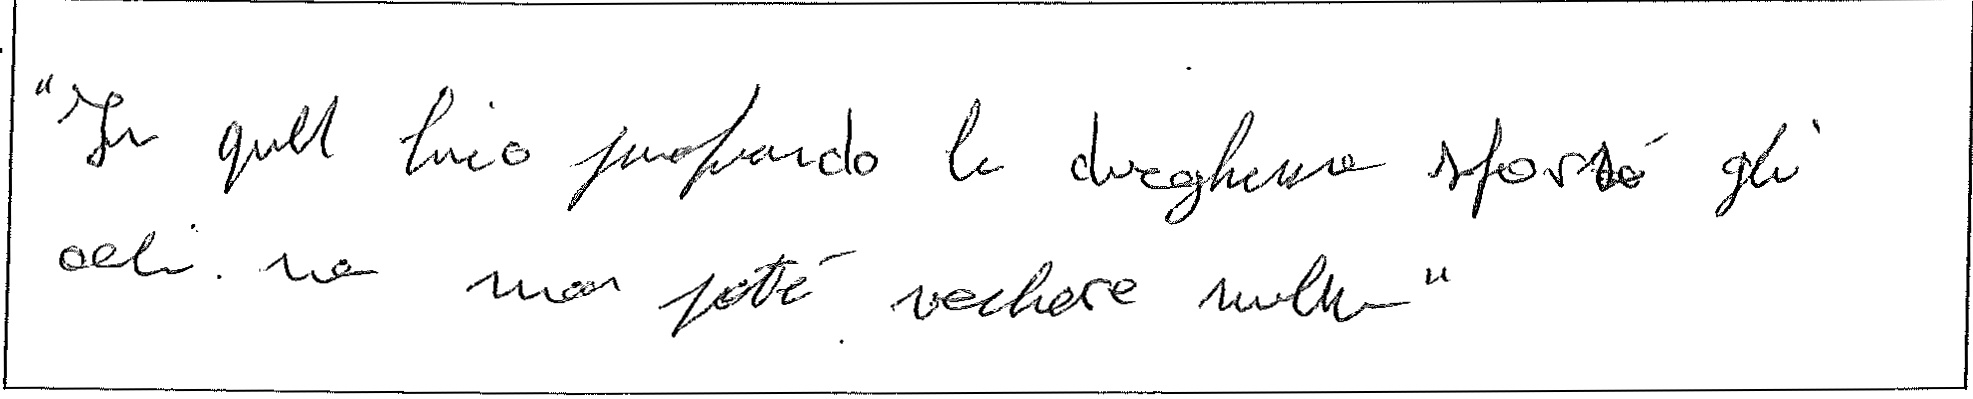 "In quell buio profondo la draghessa sforzò gli
occhi. ma non poté vedere nulla"